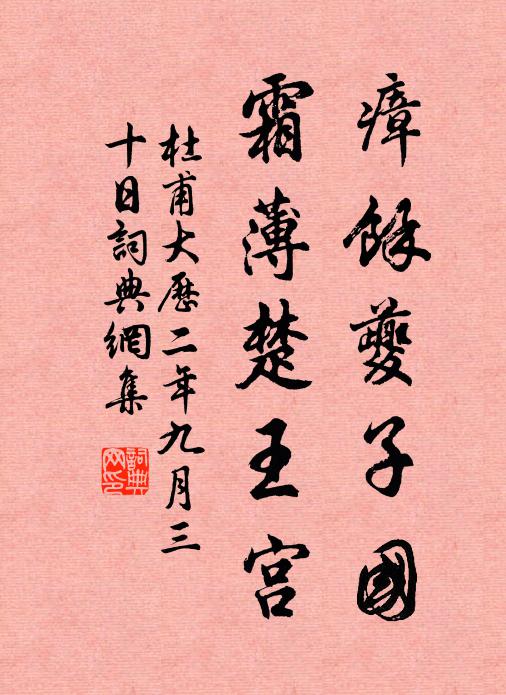 瘴餘夔子國
霜薄楚王宮
杜甫大曆二年九月三
十日詞典網集
詞典
网印